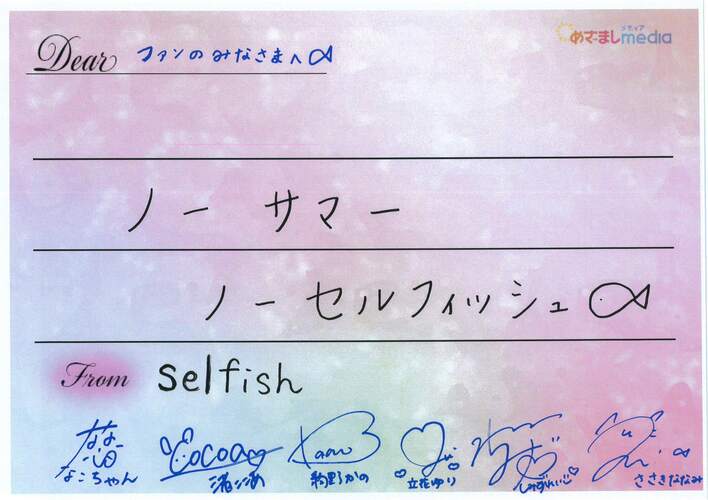 めざましmedia
メディア
Dear ファンのみなさまへ
ノー サマー
ノー セルフィッシュ
From selfish
なこちゃん
Cocoa
駒野かの
立花ゆり
ささきななみ